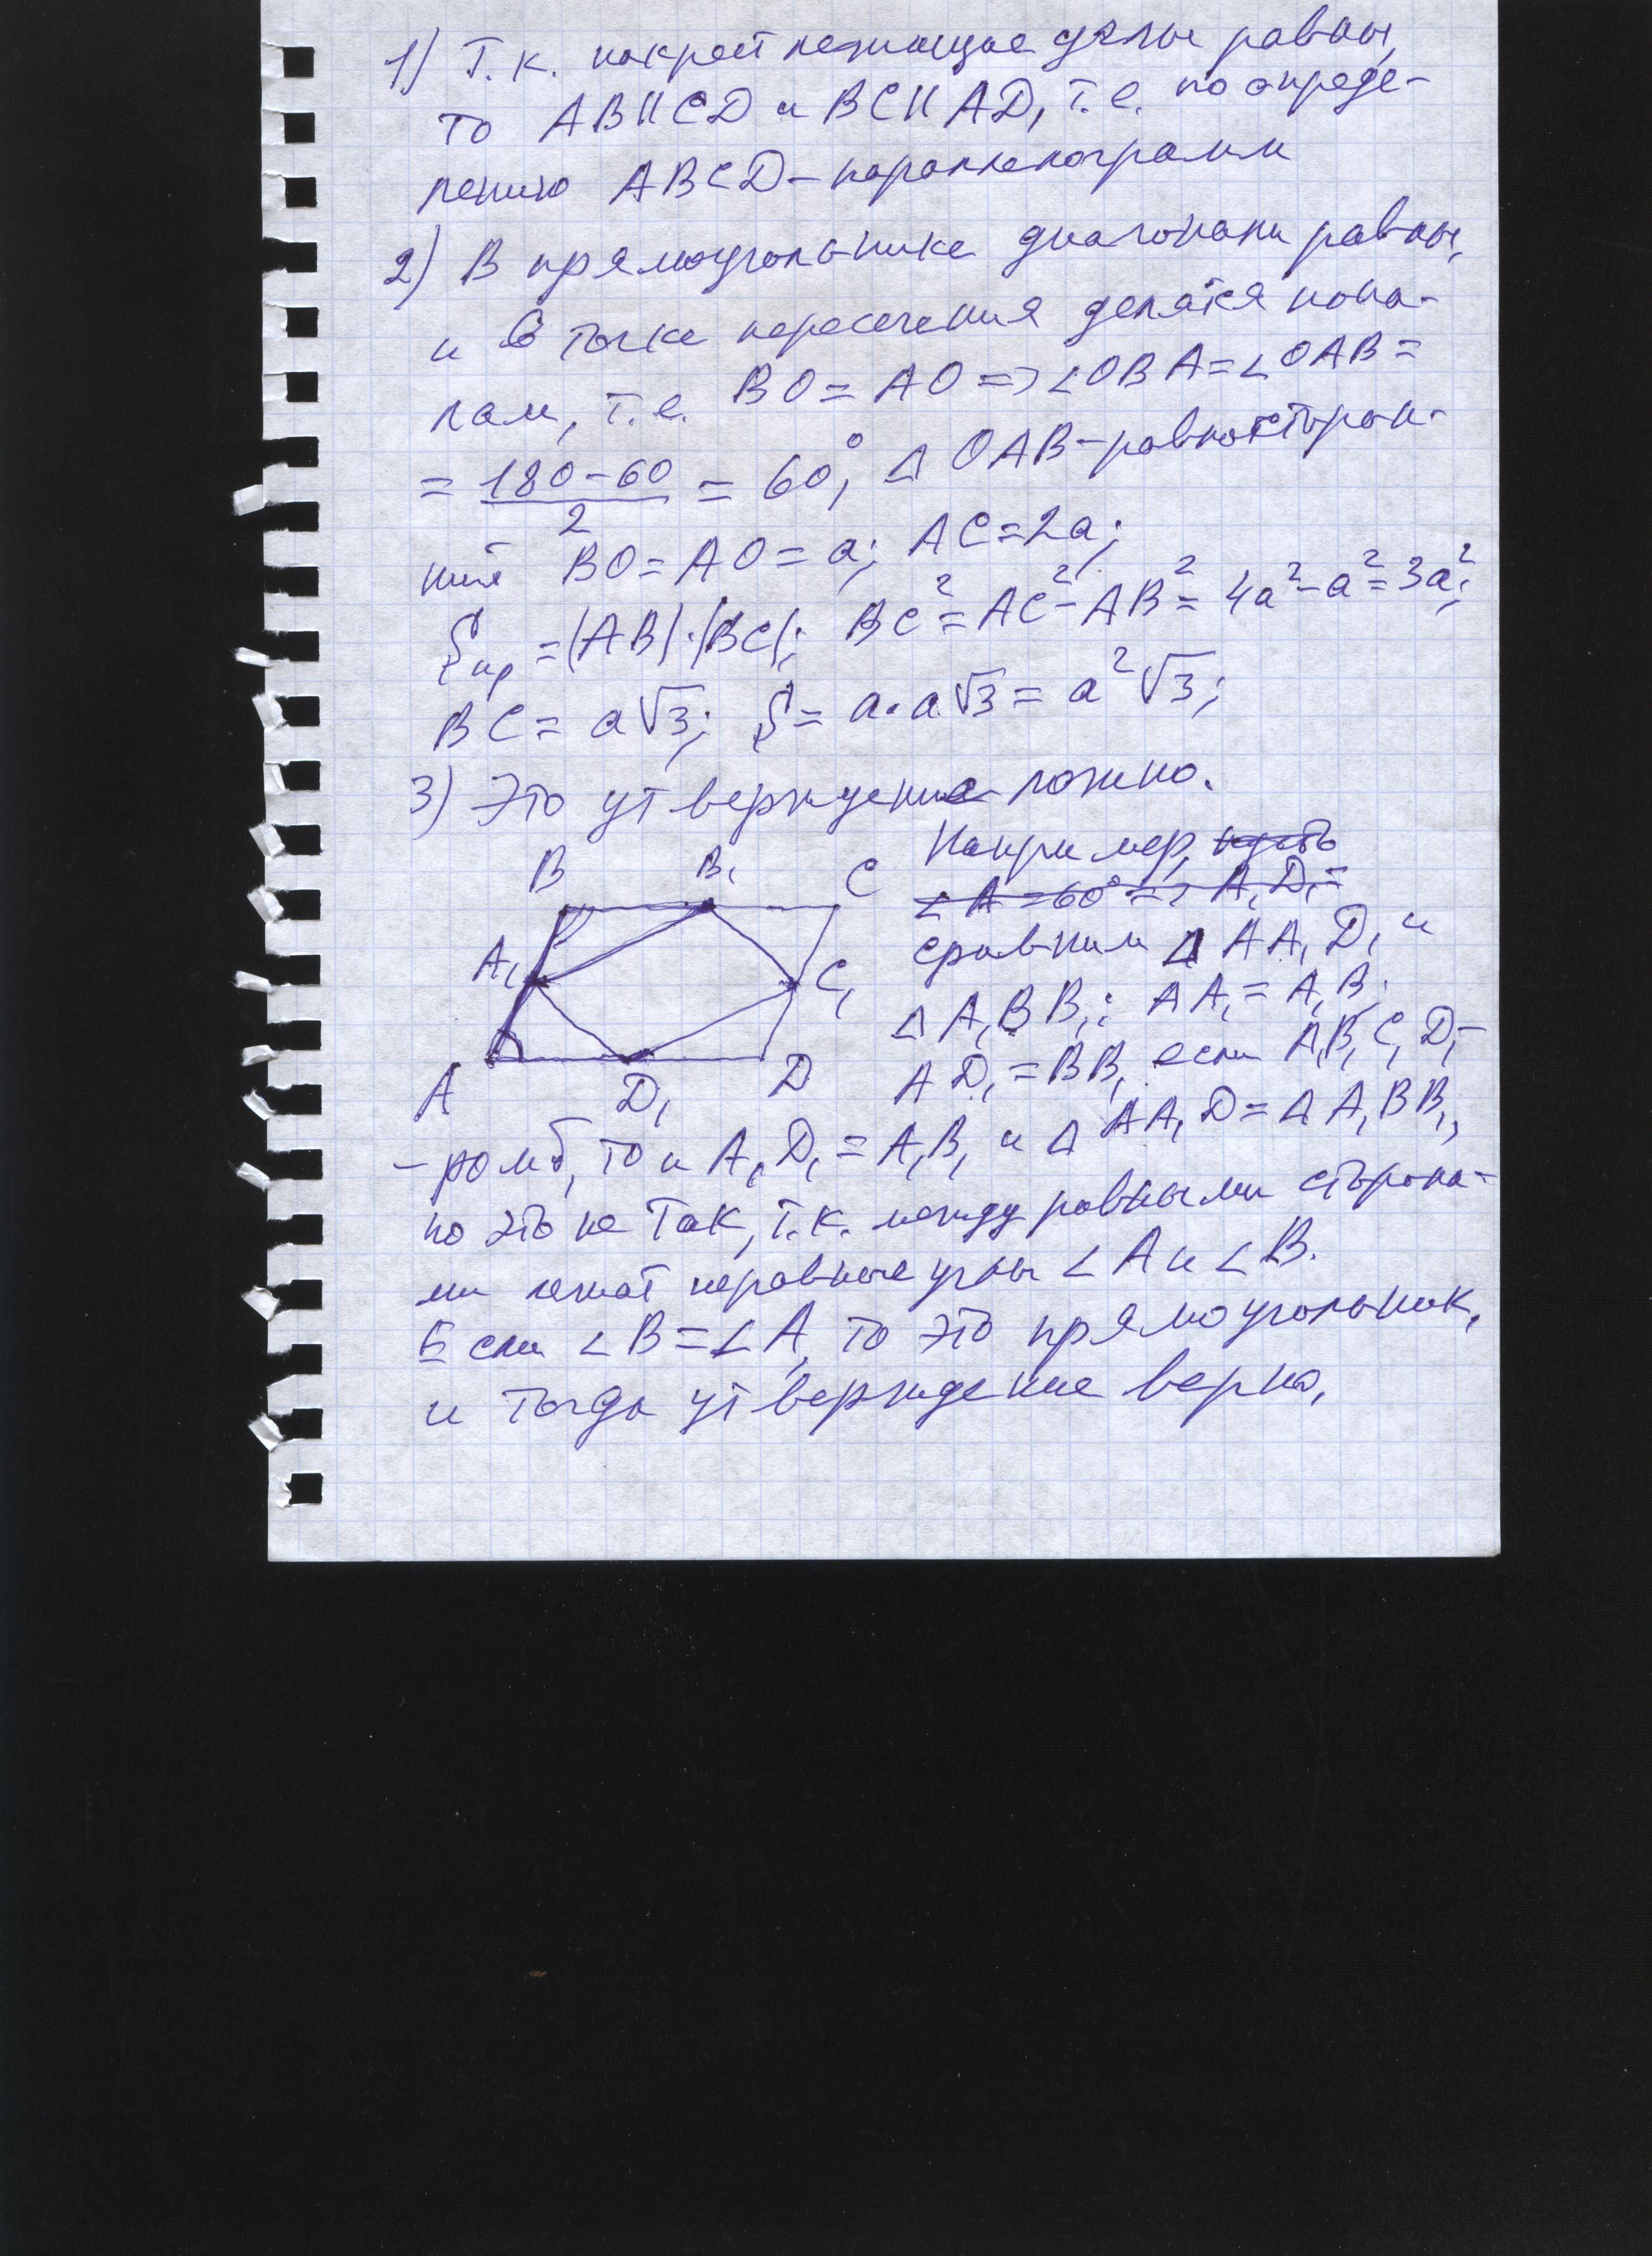 1) Т.к. накрест лежащие углы равны,
то AB||CD и BC||AD, т.е. по опреде-
лению ABCD-параллелограмм
2) В прямоугольнике диагонали равны,
и в точке пересечения делятся попо-
лам, т.е. BO=AO=>∠OBA=∠OAB=
= (180-60)/2 = 60°, △OAB-равносторон-
ний BO=AO=a; AC=2a;
Sпр=(AB)·(BC); BC²=AC²-AB²=4a²-a²=3a²;
BC=a√3; S=a·a√3=a²√3;
3) Это утверждение ложно.
Например, пусть
∠A=60°=> A₁D₁=
сравним △AA₁D₁ и
△A₁BB₁: AA₁=A₁B;
AD₁=BB₁ если A₁B₁C₁D₁-
-ромб, то и A₁D₁=A₁B₁ и △AA₁D=△A₁BB₁,
но это не так, т.к. между равными сторона-
ми лежат неравные углы ∠A и ∠B.
Если ∠B=∠A, то это прямоугольник,
и тогда утверждение верно,
B B₁ C
A₁ C₁
A D₁ D